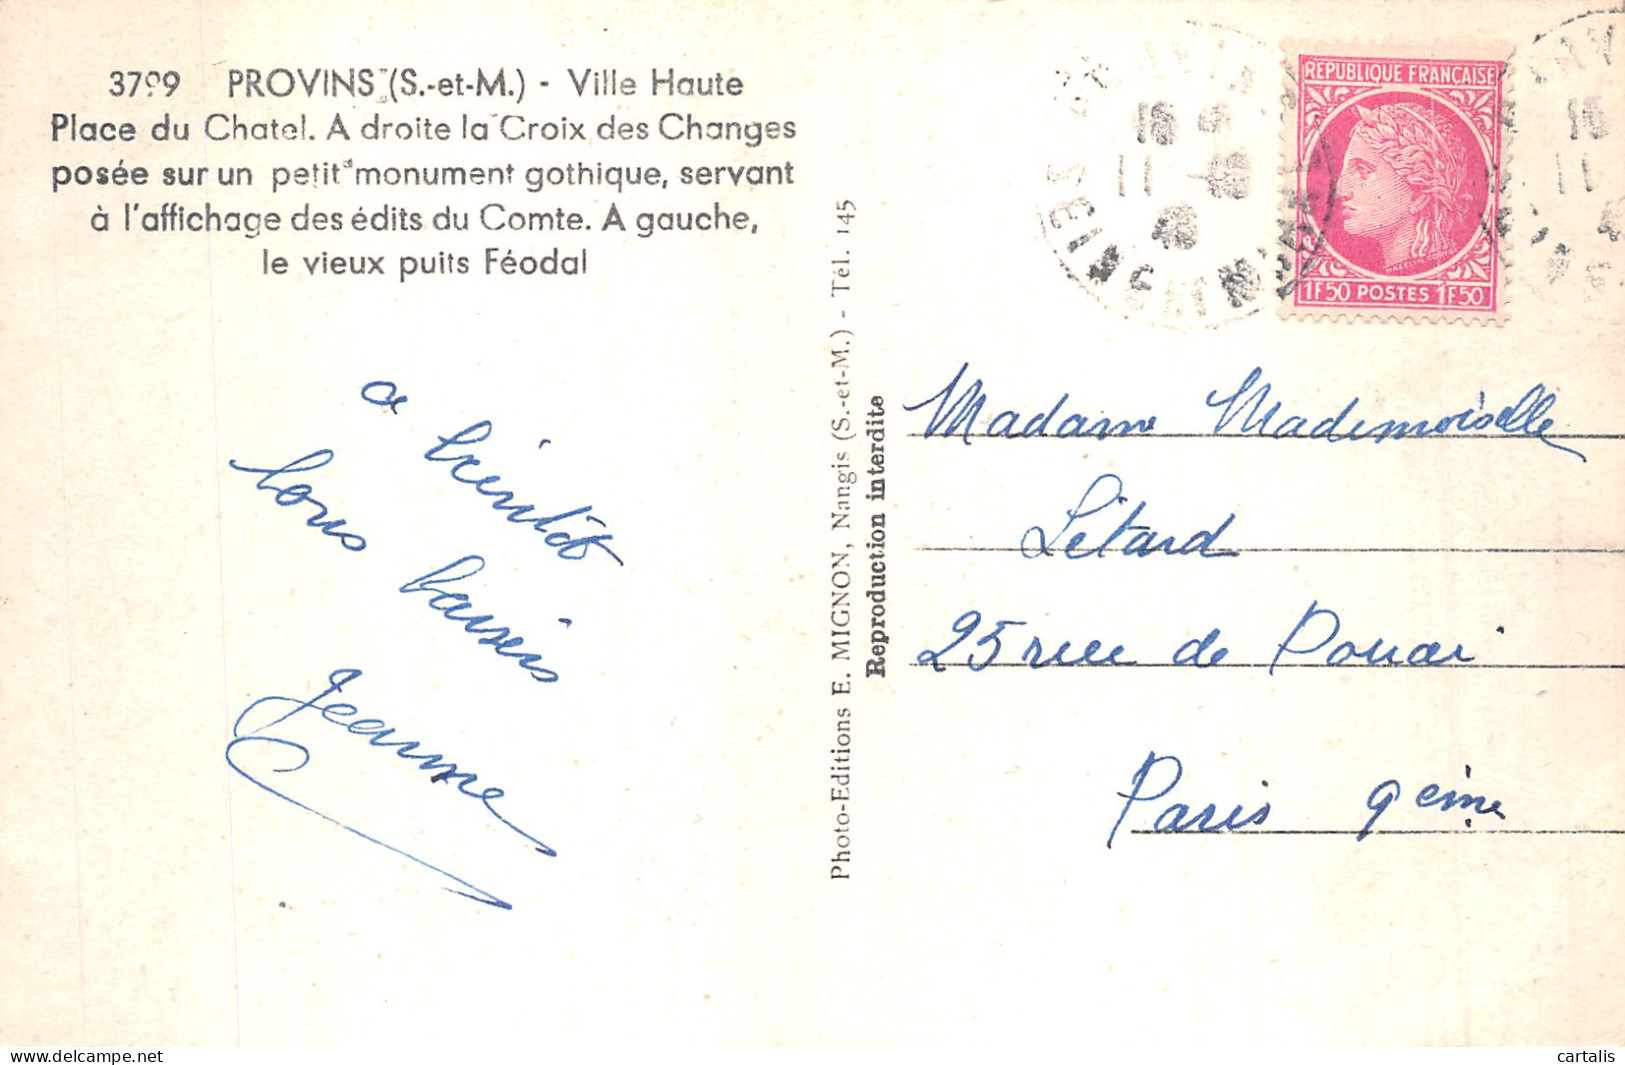 3799 PROVINS (S.-et-M.) - Ville Haute
Place du Chatel. A droite la Croix des Changes
posée sur un petit monument gothique, servant
à l'affichage des édits du Comte. A gauche,
le vieux puits Féodal
a bientôt
bons baisers
Jeanne
Photo-Editions E. MIGNON, Nangis (S.-et-M.) - Tél. 145
Reproduction interdite
REPUBLIQUE FRANÇAISE
1F50 POSTES 1F50
SEINE
Madame Mademoiselle
Létard
25 rue de Douai
Paris 9eime
delcampe.net
cartalis